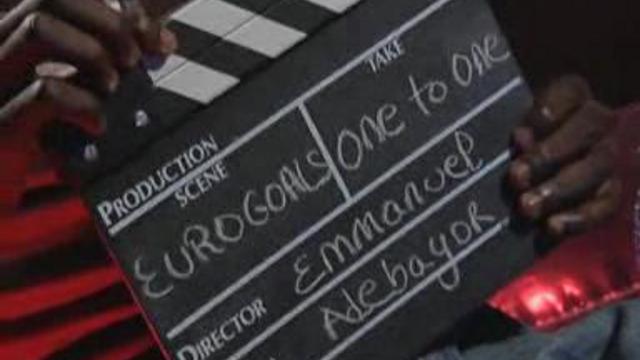 PRODUCTION
SCENE
TAKE
EUROGOALS
ONE to ONE
EMMANUEL
DIRECTOR
Adebayor